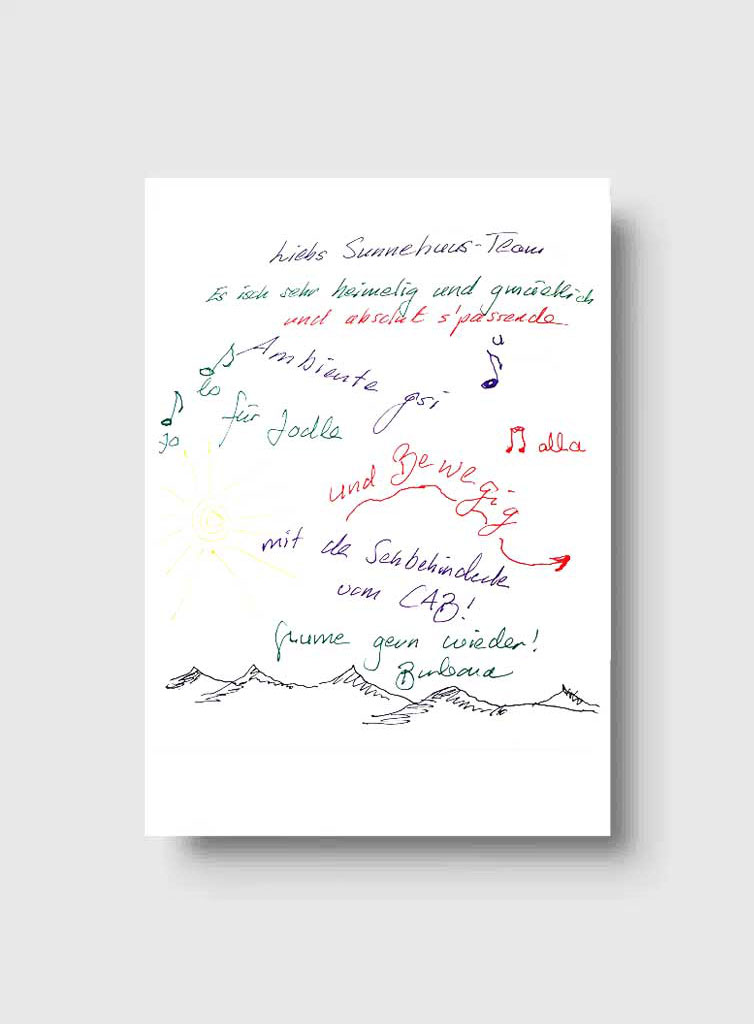 Liebs Sunnehuus-Team
Es isch sehr heimelig und gmüetlich
und absolut s'passende
u
Ambiente gsi
lo
für Jodle
Jo
alla
und Bewegig
mit de Sehbehinderte
vom CAB!
gern wieder!
Barbara